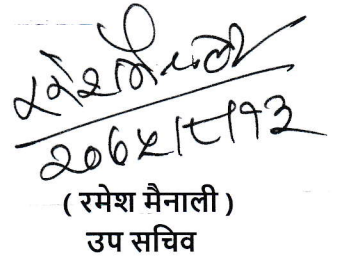 रमेश मैनाली
२०७५।८।१३
( रमेश मैनाली )
उप सचिव